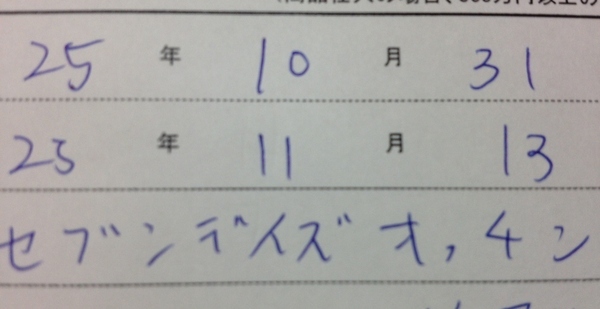 25 年 10 月 31
25 年 11 月 13
セブンデイズオッチン